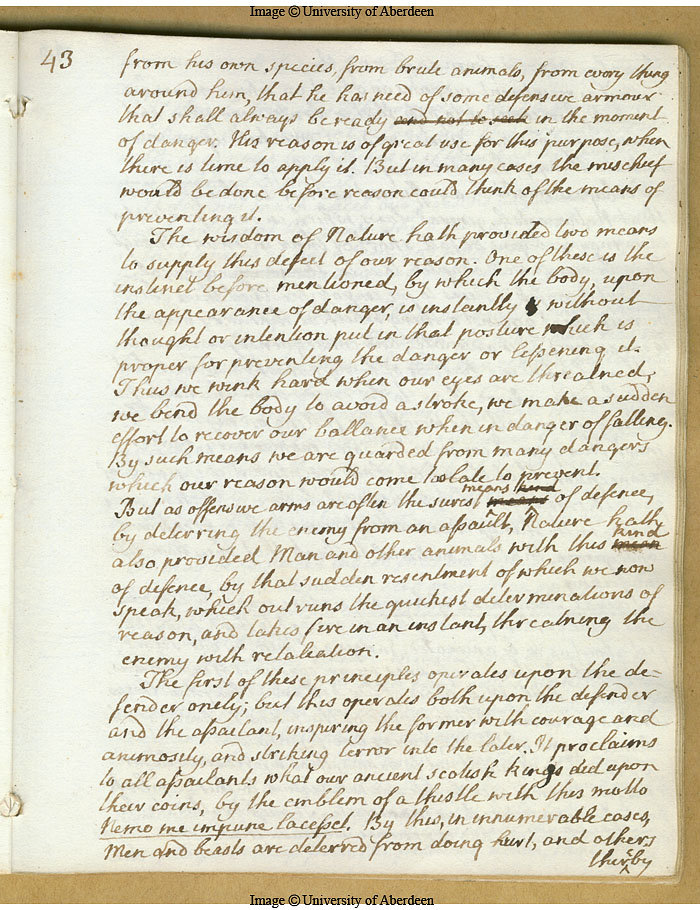 Image © University of Aberdeen
43
from his own species, from brute animals, from every thing
around him, that he has need of some defensive armour
that shall always be ready and not to seek in the moment
of danger. His reason is of great use for this purpose, when
there is time to apply it. But in many cases the mischief
would be done before reason could think of the means of
preventing it.
The wisdom of Nature hath provided two means
to supply this defect of our reason. One of these is the
instinct before mentioned, by which the body, upon
the appearance of danger, is instantly & without
thought or intention put in that posture which is
proper for preventing the danger or lessening it.
Thus we wink hard when our eyes are threatned,
we bend the body to avoid a stroke, we make a sudden
effort to recover our ballance when in danger of falling.
By such means we are guarded from many dangers
which our reason would come too late to prevent.
means kind
But as offensive arms are often the surest means of defence,
by deterring the enemy from an assault, Nature hath
kind
also provided Man and other animals with this mean
of defence, by that sudden resentment of which we now
speak, which outruns the quickest determinations of
reason, and takes fire in an instant, threatning the
enemy with retaliation.
The first of these principles operates upon the de-
fender onely; but this operates both upon the defender
and the assailant, inspiring the former with courage and
animosity, and striking terror into the later. It proclaims
to all assailants what our ancient scotish kings did upon
their coins, by the emblem of a thistle with this motto
Nemo me impune lacesset. By this, in innumerable cases,
Men and beasts are deterred from doing hurt, and others
therby
Image © University of Aberdeen